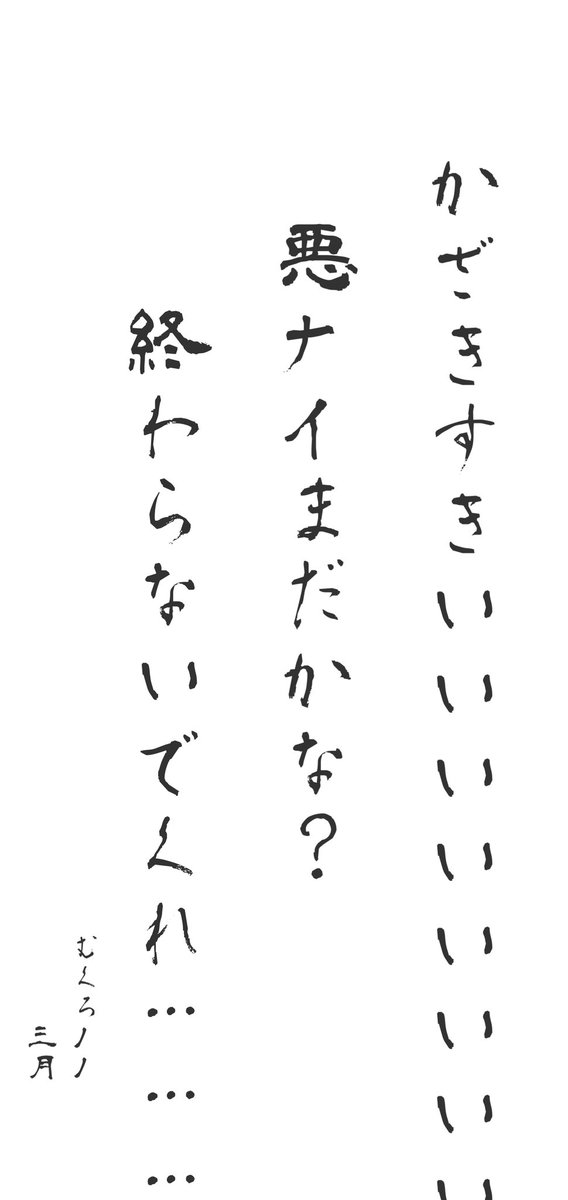 かざきすきいいいいいいいい
悪ナイまだかな?
終わらないでくれ………
むくろノノ
三月